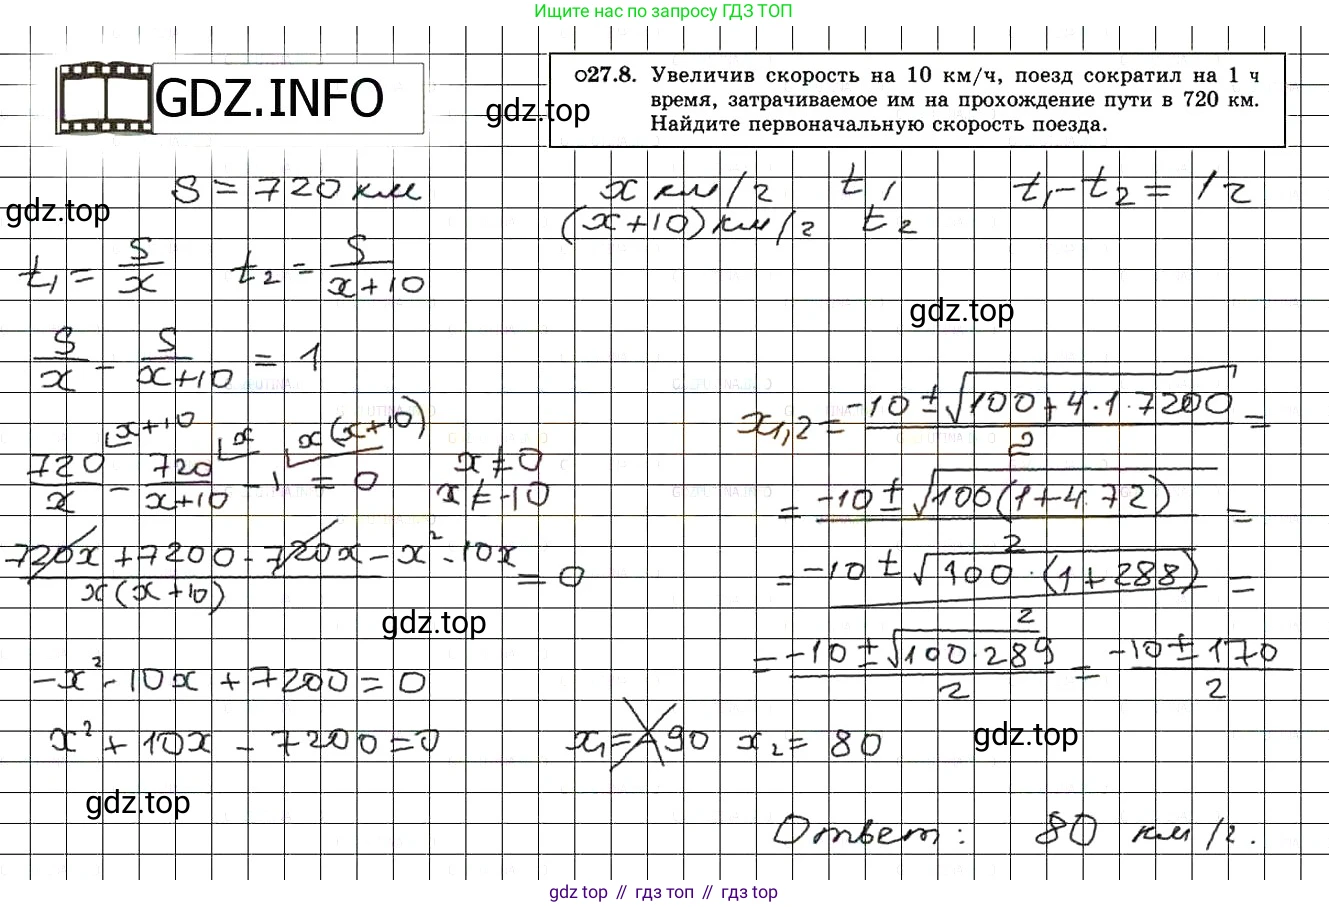 Ищите нас по запросу ГДЗ ТОП
GDZ.INFO
27.8. Увеличив скорость на 10 км/ч, поезд сократил на 1 ч
время, затрачиваемое им на прохождение пути в 720 км.
Найдите первоначальную скорость поезда.
gdz.top
S = 720 км
x км/ч t₁
t₁ - t₂ = 1 ч
gdz.top
(x+10) км/ч t₂
t₁ = S/x t₂ = S/(x+10)
gdz.top
S/x - S/(x+10) = 1
720/x - 720/(x+10) - 1 = 0
x+10 x x(x+10)
x ≠ 0
x ≠ -10
(720x + 7200 - 720x - x² - 10x)/(x(x+10)) = 0
gdz.top
-x² - 10x + 7200 = 0
x² + 10x - 7200 = 0
gdz.top
x₁,₂ = (-10 ± √(100 + 4·1·7200))/2 =
= (-10 ± √(100(1+4·72)))/2 =
= (-10 ± √(100·(1+288)))/2 =
= (-10 ± √(100·289))/2 = (-10 ± 170)/2
x₁ = -90 x₂ = 80
gdz.top
Ответ: 80 км/ч.
gdz top // гдз топ // гдз top